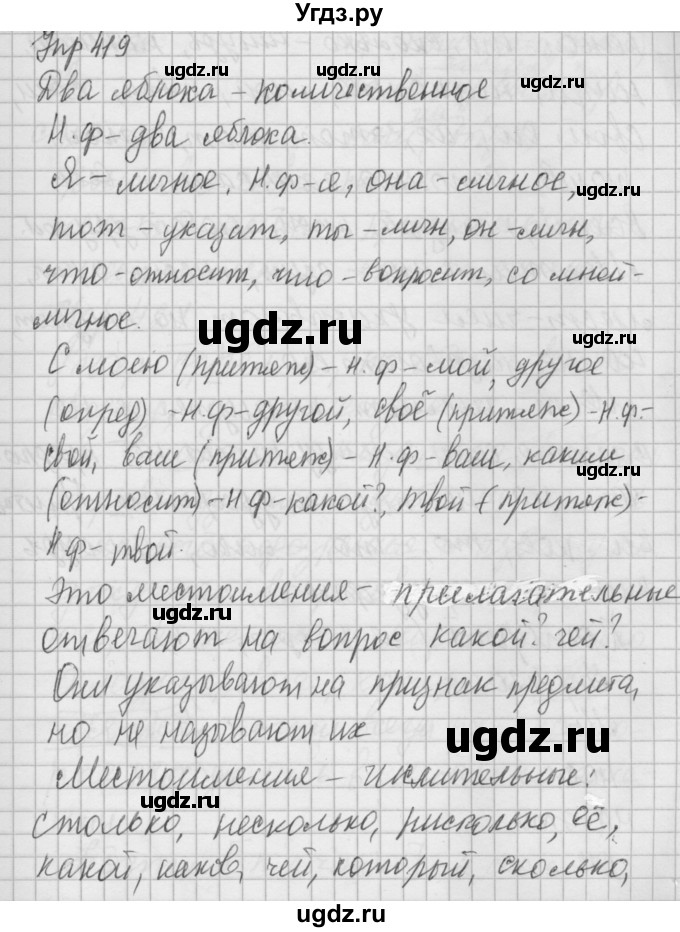 Угдз.ру
Упр 419
ugdz.ru
Два яблока – количественное
ugdz.ru
ugdz.ru
Н.ф – два яблока.
Я – личное. Н.ф – я, она – личное,
ugdz.ru
тот – указат, ты – личн, он – личн,
ugdz.ru
что – относит, что – вопросит, со мной –
личное.
ugdz.ru
ugdz.ru
С моею (притяж) – Н.ф – мой, другое
ugdz.ru
(опред) – Н.ф – другой, своё (притяж) – Н.ф –
свой, ваш (притяж) – Н.ф – ваш, каким
ugdz.ru
ugdz.ru
(относит) – Н ф – какой?, твой (притяж) –
Н ф – твой.
ugdz.ru
Это местоимения – прилагательные
ugdz.ru
отвечают на вопрос какой? чей?
ugdz.ru
Они указывают на признак предмета,
но не называют их
ugdz.ru
Местоимения – числительные:
ugdz.ru
столько, несколько, нисколько, её,
какой, каков, чей, который, сколько,
ugdz.ru
ugdz.ru